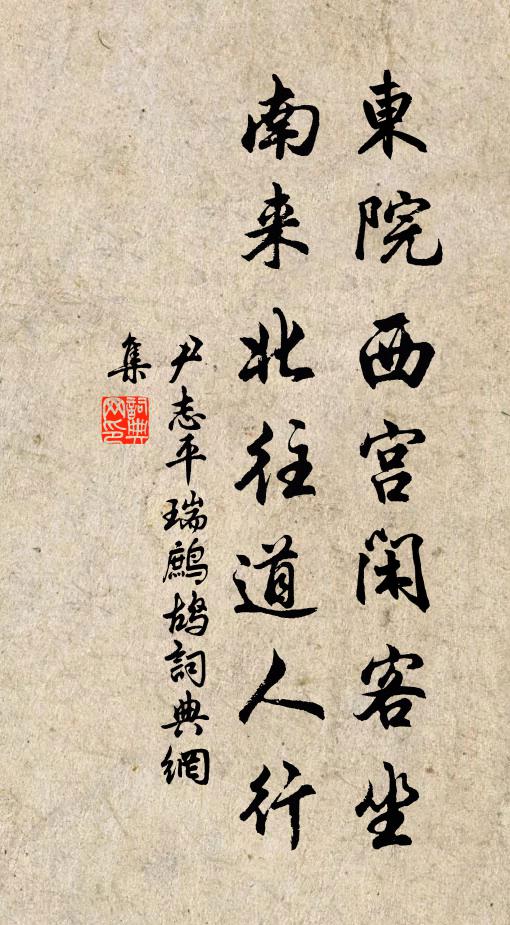 東院西宫閑客坐
南来北往道人行
尹志平瑞鷓鴣詞典網
集
詞典網印